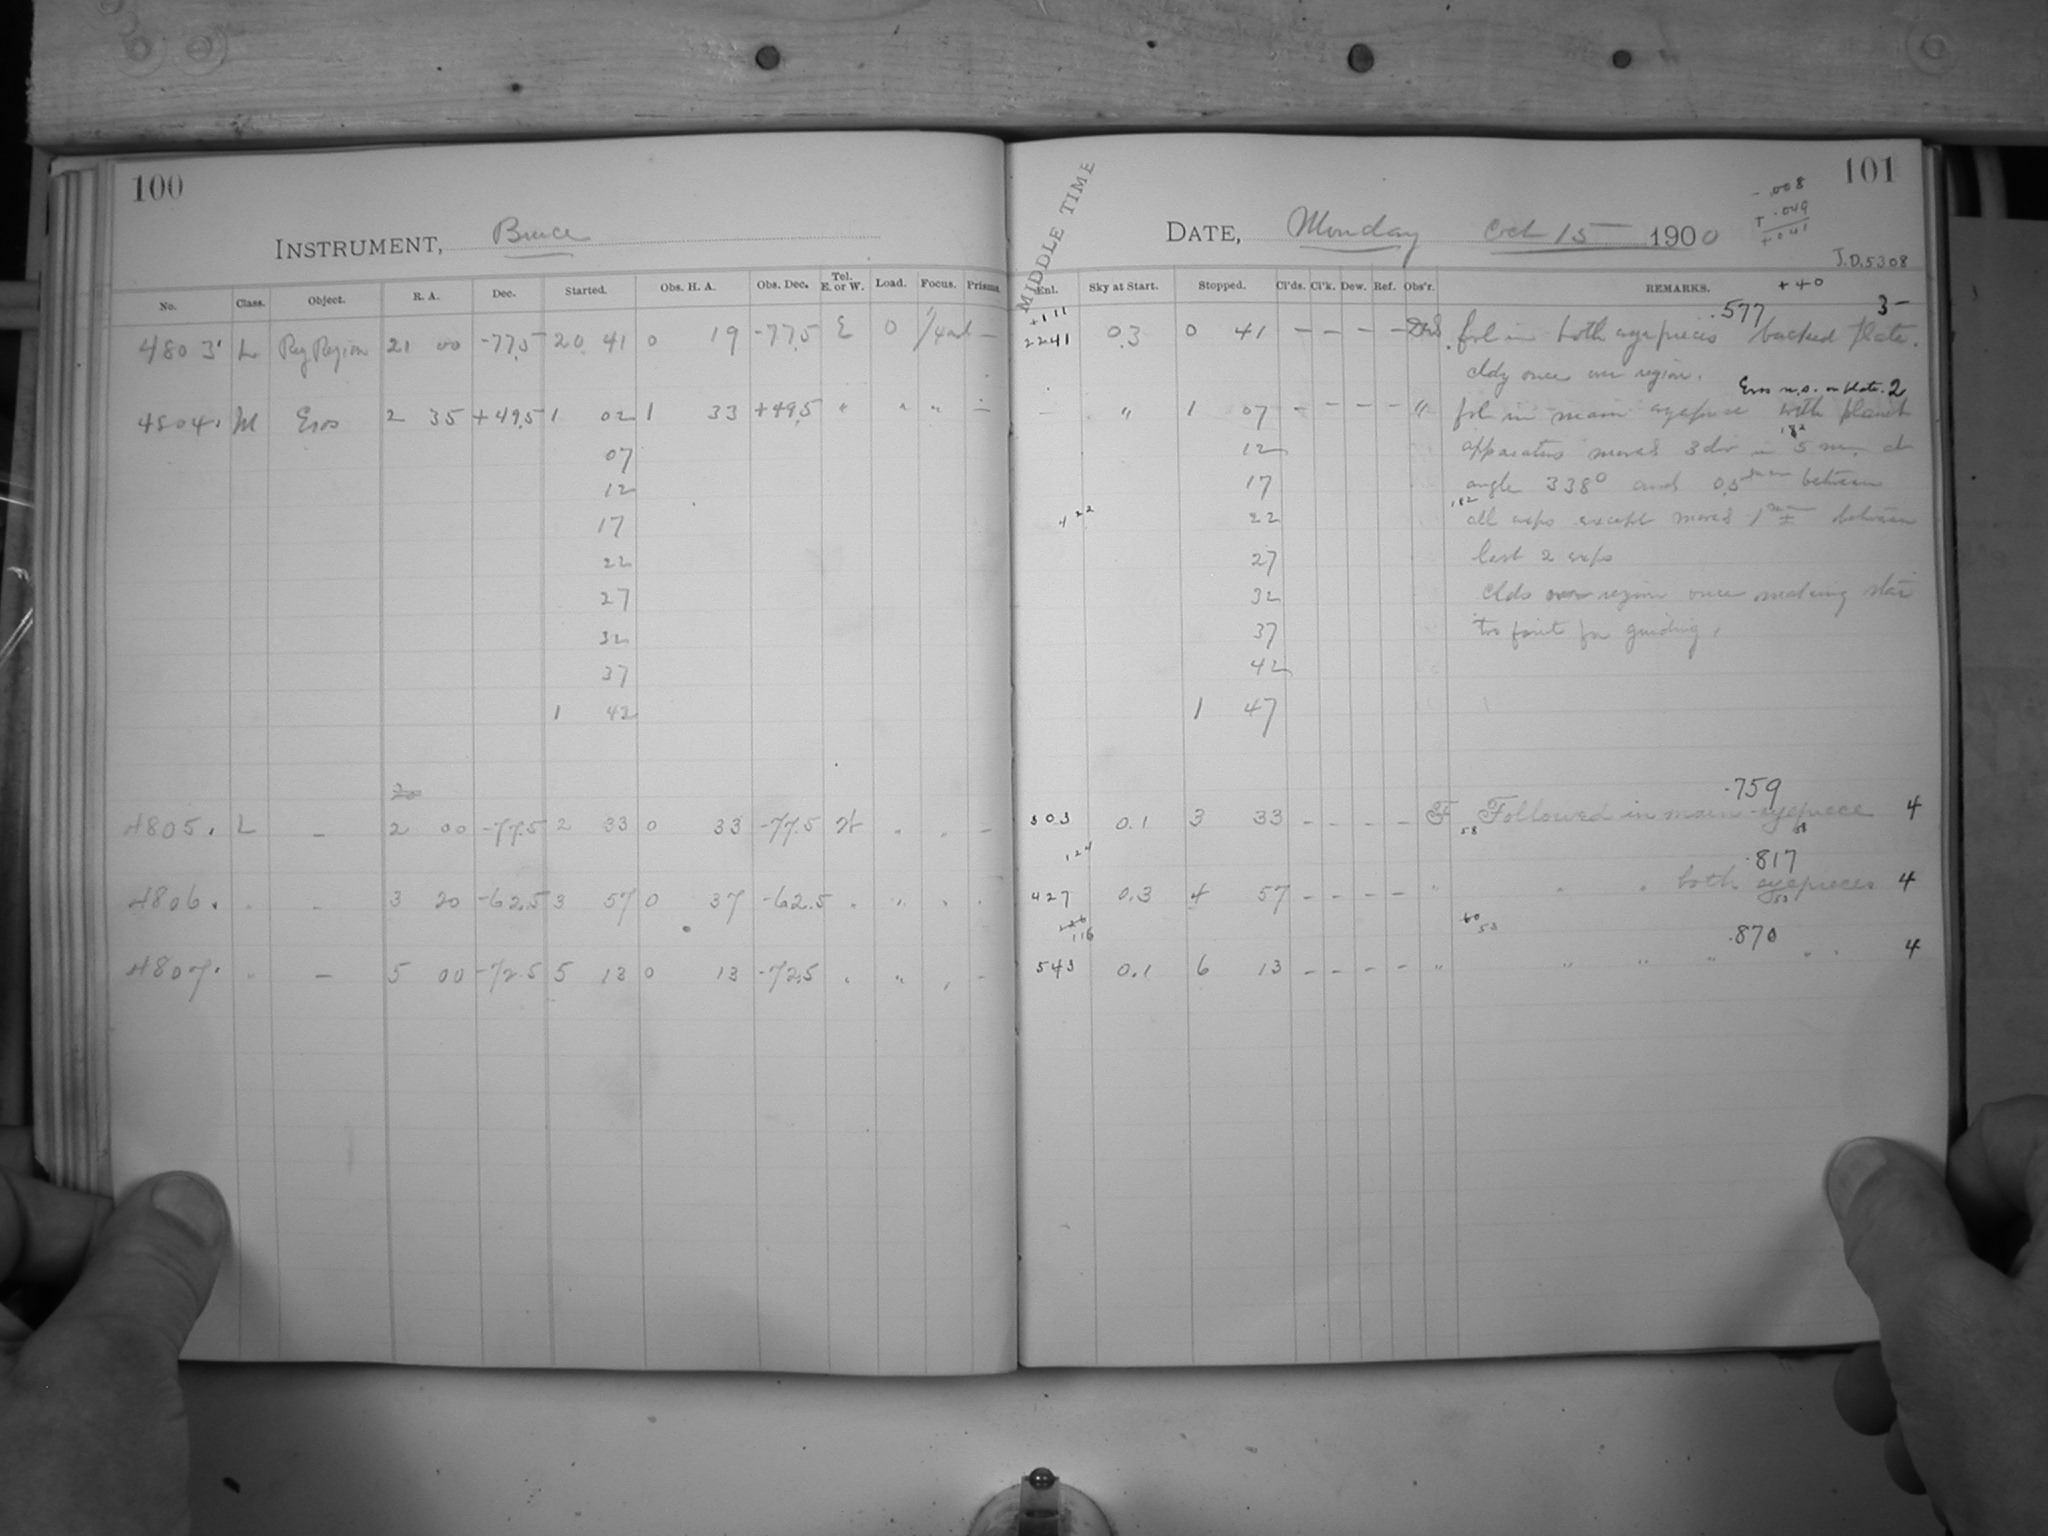 100
INSTRUMENT, Bruce
No. Class. Object. R. A. Dec. Started. Obs. H. A. Obs. Dec. Tel. E. or W. Load. Focus. Prisms.
4803 L Reg Region 21 00 -77.5 20 41 0 19 -77.5 E 0 —
4804. M Eros 2 35 +49.5 1 02 1 33 +49.5 " " " —
07
12
17
22
27
32
37
1 42
4805. L — 2 00 -77.5 2 33 0 33 -77.5 W " " —
4806. " — 3 20 -62.5 3 57 0 37 -62.5 " " " "
4807. " — 5 00 -72.5 5 13 0 13 -72.5 " " " —
MIDDLE TIME
101
DATE, Monday Oct 15 1900
-.008
+.049
+.041
J.D. 5308
Enl. Sky at Start. Stopped. Cl'ds. Cl'k. Dew. Ref. Obs'r. REMARKS. +40
+111 .577 3-
2241 0.3 0 41 — — — — fol in both eyepieces backed plate.
cldy once over region.
Eros n.s. on plate. 2
— " 1 07 — — — — " fol in main eyepiece with planet
12 apparatus moved 3 div in 5 m. at
17 angle 338° and 0.5 between
422 22 all exps except moved 1 between
27 last 2 exps
32 clds over region once making star
37 too faint for guiding.
42
1 47
.759
303 0.1 3 33 — — — — F 58 Followed in main eyepiece 4
124 .817
427 0.3 4 57 — — — — " " " both eyepieces 4
116 53 .870
543 0.1 6 13 — — — — " " " " " " 4